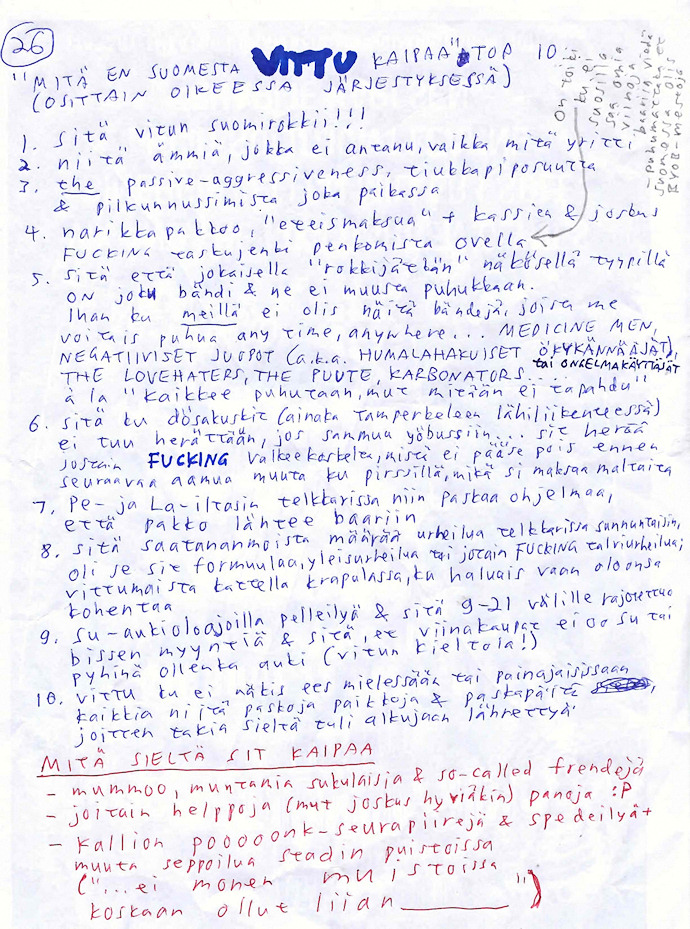 26
"MITÄ EN SUOMESTA VITTU KAIPAA" TOP 10
(OSITTAIN OIKEESSA JÄRJESTYKSESSÄ)
1. sitä vitun suomirokkii!!!
2. niitä ämmiä, jokka ei antanu, vaikka mitä yritti
3. the passive-aggressiveness, tiukkapiposuutta
& pilkunnussimista joka paikassa
4. narikkapakkoo, "eteismaksua" + kassien & joskus
FUCKING taskujenki penkomista ovella
On toiki
ku ei
suosiilla
saa omia
viinoja
baariin viedä
-puhumattakaan et
Suomessa olis
BYOB-mestoja
5. sitä että jokaisella "rokkijätkän" näkösellä tyypillä
ON joku bändi & ne ei muusta puhukkaan.
Ihan ku meillä ei olis näitä bändejä, joista me
voitais puhua any time, anywhere... MEDICINE MEN,
NEGATIIVISET JUOPOT (a.k.a. HUMALAHAKUISET ÖKYKÄNNÄÄJÄT),
tai ONGELMAKÄYTTÄJÄT
THE LOVEHATERS, THE PUUTE, KARBONATORS...
à la "kaikkee puhutaan, mut mitään ei tapahdu"
6. sitä ku dösakuskit (ainaka Tamperkeleen lähiliikenteessä)
ei tuu herättään, jos sammuu yöbussiin... sit herää
jostain FUCKING Valkeekoskelta, mistä ei pääse pois ennen
seuraavaa aamua muuta ku pirssillä, mikä si maksaa maltaita
7. Pe- ja La-iltasin telkkarissa niin paskaa ohjelmaa,
että pakko lähtee baariin
8. sitä saatananmoista määrää urheilua telkkarissa sunnuntaisin,
oli se sit formuulaa, yleisurheilua tai jotain FUCKING talviurheilua;
vittumaista kattella krapulassa, ku haluais vaan oloonsa
kohentaa
9. su-aukioloajoilla pelleilyä & sitä 9-21 välille rajotettuu
bissen myyntiä & sitä, et viinakaupat ei oo su tai
pyhinä ollenka auki (vitun kieltola!)
10. vittu ku ei näkis ees mielessään tai painajaisissaan
kaikkia niitä paskoja paikkoja & paskapäitä,
joitten takia sieltä tuli alkujaan lähettyä
MITÄ SIELTÄ SIT KAIPAA
- mummoo, muutamia sukulaisia & so-called frendejä
- joitain helppoja (mut joskus hyviäkin) panoja :P
- Kallion pooooonk-seurapiirejä & spedeilyä +
muuta seppoilua stadin puistoissa
("...ei monen muistoissa
koskaan ollut liian ________")